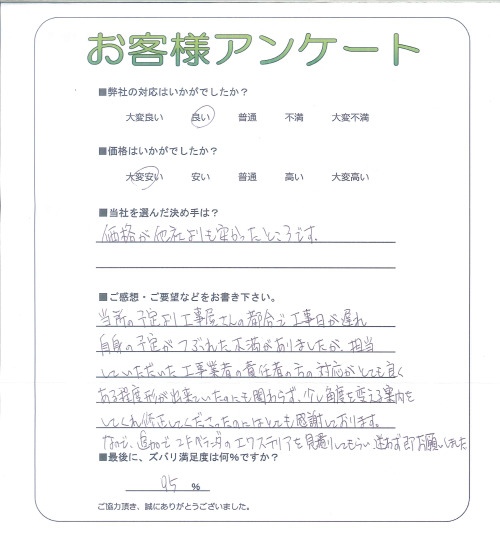 お客様アンケート
■弊社の対応はいかがでしたか？
大変良い 良い 普通 不満 大変不満
■価格はいかがでしたか？
大変安い 安い 普通 高い 大変高い
■当社を選んだ決め手は？
価格が他社よりも安かったところです。
■ご感想・ご要望などをお書き下さい。
当初の予定より工事屋さんの都合で工事日が遅れ
自身の予定がつぶれた不満がありましたが、担当
していただいた工事業者の責任者の方の対応がとても良く
ある程度形が出来ていたのにも関わらず、少し角度を変える案内を
してくれ修正してくださったのにはとても感謝しております。
なので、追加で ベランダのエクステリアを見積りしてもらい、迷わず即お願いしました
■最後に、ズバリ満足度は何％ですか？
95 ％
ご協力頂き、誠にありがとうございました。